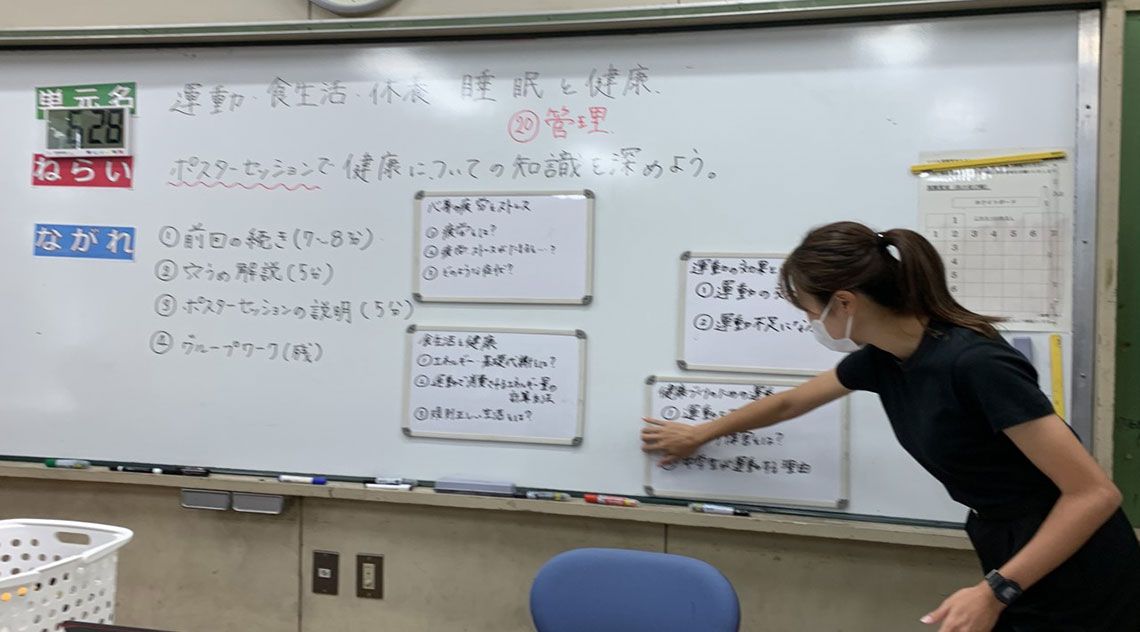 単元名
運動・食生活・休養 睡眠と健康.
⑳管理.
5:28
ねらい
ポスターセッションで健康についての知識を深めよう。
ながれ
①前回の続き(7~8分)
②穴うめ解説(5分)
③ポスターセッションの説明(5分)
④グループワーク(残)
心身の疲労とストレス
①疲労とは?
②疲労・ストレスがたまると…?
③どのような症状?
食生活と健康
①エネルギー・基礎代謝とは?
②運動で消費するエネルギー量の
計算方法
③規則正しい生活とは?
運動の効果と
①運動の
②運動不足にな
健康づくりのための運動
①運動
障害とは?
中学生が運動する理由
ホワイトボード
1 2 3 4 5 6 7
2
3
4
5
6